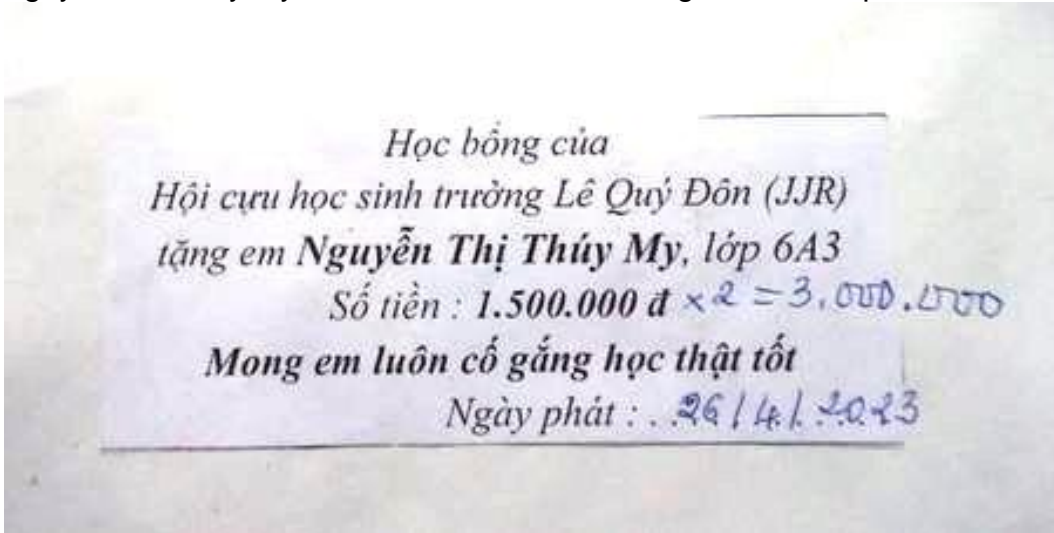 Học bổng của
Hội cựu học sinh trường Lê Quý Đôn (JJR)
tặng em Nguyễn Thị Thúy My, lớp 6A3
Số tiền : 1.500.000 đ x 2 = 3.000.000
Mong em luôn cố gắng học thật tốt
Ngày phát : . . 26 / 4 / 2023